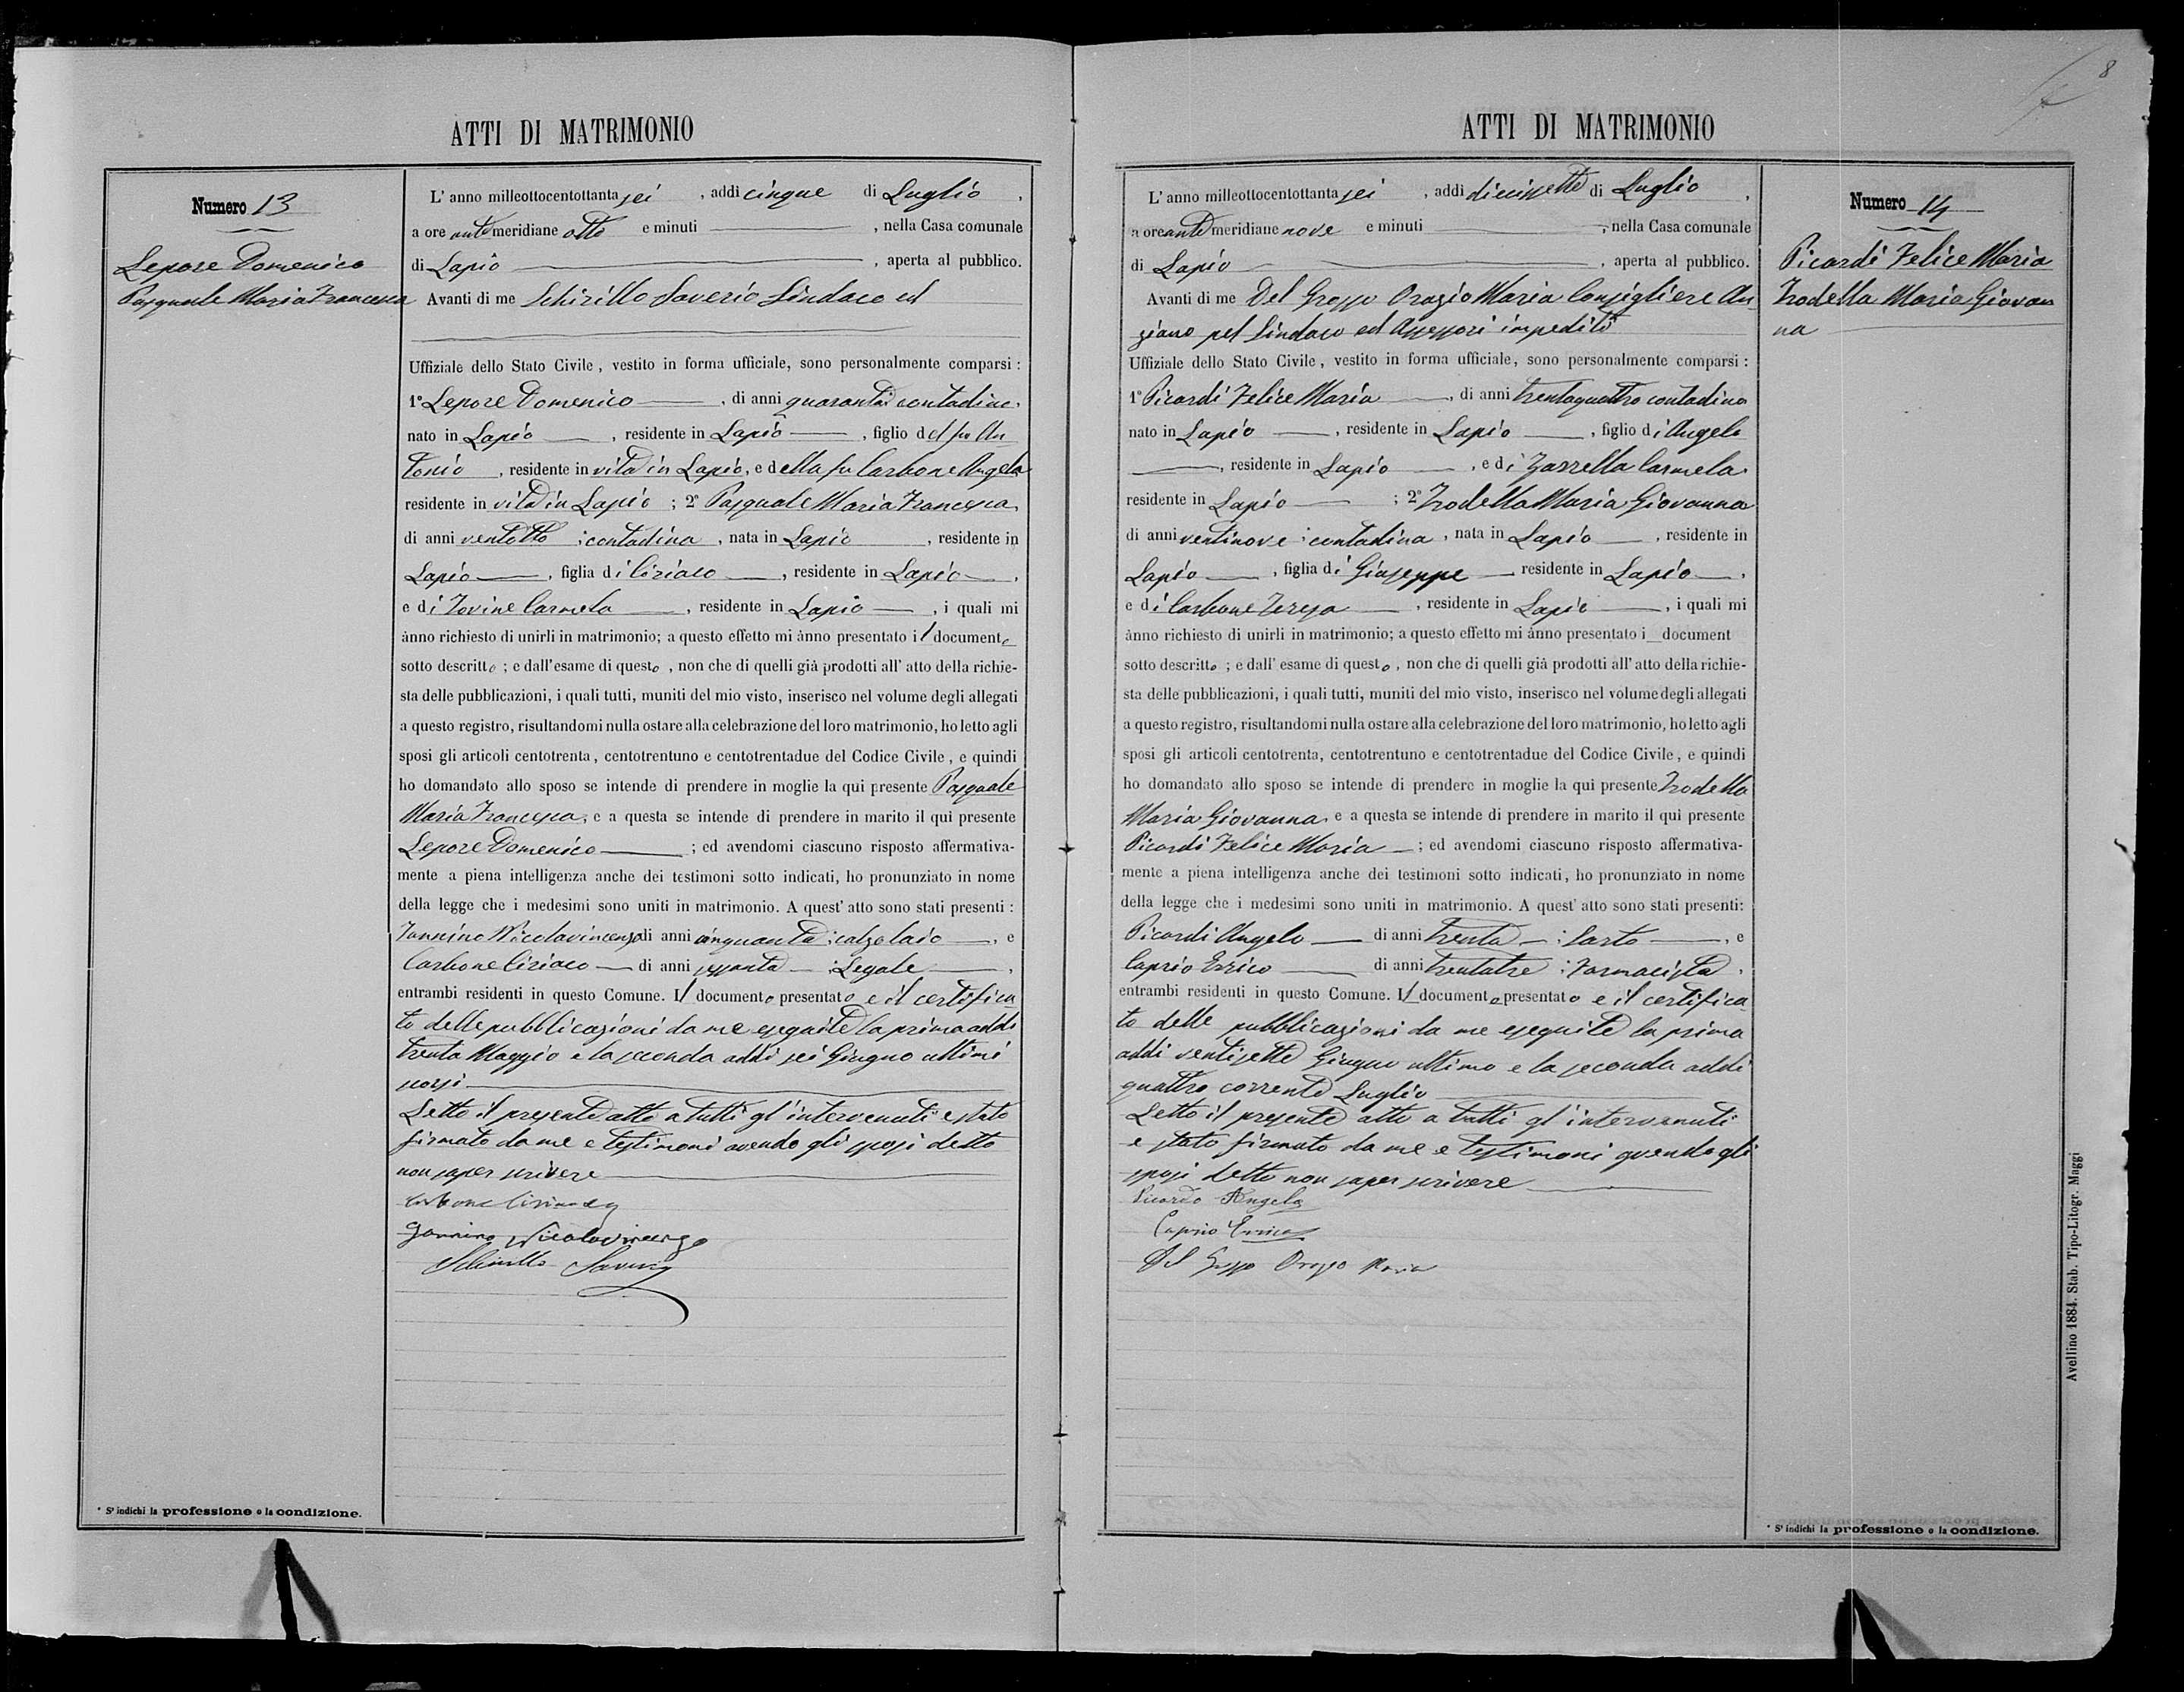 ATTI DI MATRIMONIO
Numero 13
Lepore Domenico
Pasquale Maria Francesca
L'anno milleottocentottanta sei, addì cinque di Luglio,
a ore anti meridiane otto e minuti ———, nella Casa comunale
di Lapio ———, aperta al pubblico.
Avanti di me Schirillo Saverio Sindaco ed
Uffiziale dello Stato Civile, vestito in forma ufficiale, sono personalmente comparsi:
1° Lepore Domenico ———, di anni quaranta contadino,
nato in Lapio ———, residente in Lapio ———, figlio del fu An
tonio, residente in vita in Lapio, e della fu Carbone Angela
residente in vita in Lapio; 2° Pasquale Maria Francesca,
di anni ventotto; contadina, nata in Lapio, residente in
Lapio ———, figlia di Ciriaco ———, residente in Lapio ———,
e di Iovine Carmela ———, residente in Lapio ———, i quali mi
ànno richiesto di unirli in matrimonio; a questo effetto mi ànno presentato il documento
sotto descritto; e dall'esame di questo, non che di quelli già prodotti all'atto della richie-
sta delle pubblicazioni, i quali tutti, muniti del mio visto, inserisco nel volume degli allegati
a questo registro, risultandomi nulla ostare alla celebrazione del loro matrimonio, ho letto agli
sposi gli articoli centotrenta, centotrentuno e centotrentadue del Codice Civile, e quindi
ho domandato allo sposo se intende di prendere in moglie la qui presente Pasquale
Maria Francesca, e a questa se intende di prendere in marito il qui presente
Lepore Domenico ———; ed avendomi ciascuno risposto affermativa-
mente a piena intelligenza anche dei testimoni sotto indicati, ho pronunziato in nome
della legge che i medesimi sono uniti in matrimonio. A quest'atto sono stati presenti:
Iannino Nicolavincenzo di anni cinquanta; calzolaio ———, e
Carbone Ciriaco — di anni sessanta —; Legale ———,
entrambi residenti in questo Comune. Il documento presentato e il certifica
to delle pubblicazioni da me eseguite la prima addì
trenta Maggio e la seconda addì sei Giugno ultimi
scorsi ———
Letto il presente atto a tutti gl'intervenuti e stato
firmato da me e testimoni avendo gli sposi detto
non saper scrivere ———
Carbone Ciriaco
Gannino Nicolavincenzo
Schirillo Saverio
* S'indichi la professione o la condizione.
8
ATTI DI MATRIMONIO
Numero 14
Picardi Felice Maria
Trodella Maria Giovan
na
L'anno milleottocentottanta sei, addì diecisette di Luglio,
a ore anti meridiane nove e minuti ———, nella Casa comunale
di Lapio ———, aperta al pubblico.
Avanti di me Del Grosso Orazio Maria Consigliere An
ziano pel Sindaco ed Assessori impediti
Uffiziale dello Stato Civile, vestito in forma ufficiale, sono personalmente comparsi:
1° Picardi Felice Maria ———, di anni trentaquattro contadino
nato in Lapio ———, residente in Lapio ———, figlio di Angelo
———, residente in Lapio ———, e di Zarrella Carmela
residente in Lapio ———; 2° Trodella Maria Giovanna
di anni ventinove; contadina, nata in Lapio ———, residente in
Lapio ———, figlia di Giuseppe — residente in Lapio ———,
e di Carbone Teresa ———, residente in Lapio ———, i quali mi
ànno richiesto di unirli in matrimonio; a questo effetto mi ànno presentato i_ document
sotto descritto; e dall'esame di questo, non che di quelli già prodotti all'atto della richie-
sta delle pubblicazioni, i quali tutti, muniti del mio visto, inserisco nel volume degli allegati
a questo registro, risultandomi nulla ostare alla celebrazione del loro matrimonio, ho letto agli
sposi gli articoli centotrenta, centotrentuno e centotrentadue del Codice Civile, e quindi
ho domandato allo sposo se intende di prendere in moglie la qui presente Trodella
Maria Giovanna e a questa se intende di prendere in marito il qui presente
Picardi Felice Maria —; ed avendomi ciascuno risposto affermativa-
mente a piena intelligenza anche dei testimoni sotto indicati, ho pronunziato in nome
della legge che i medesimi sono uniti in matrimonio. A quest'atto sono stati presenti:
Picardi Angelo — di anni trenta —; Sarto ———, e
Caprio Errico ——— di anni trentatre; Farmacista,
entrambi residenti in questo Comune. Il documento presentato e il certifica
to delle pubblicazioni da me eseguite la prima
addì ventisette Giugno ultimo e la seconda addì
quattro corrente Luglio ———
Letto il presente atto a tutti gl'intervenuti
e stato firmato da me e testimoni avendo gli
sposi detto non saper scrivere ———
Picardo Angelo
Caprio Errico
Del Grosso Orazio Maria
* S'indichi la professione o la condizione.
Avellino 1884. Stab. Tipo-Litogr. Maggi